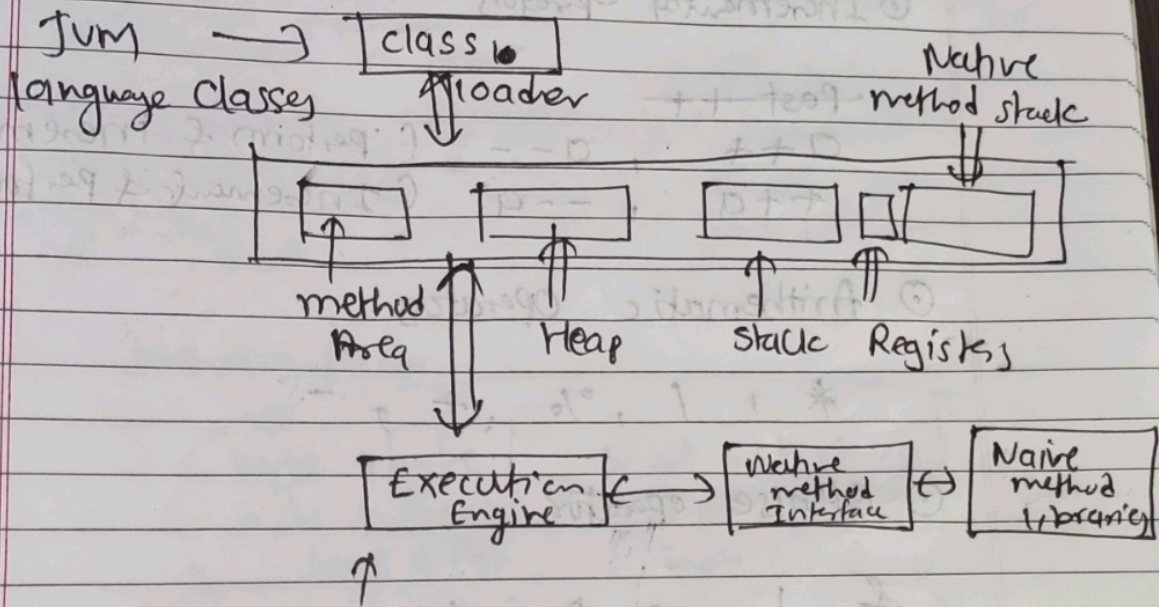 JVM → class
language classes loader
Native
method stack
method
Area
Heap
Stack
Registers
Execution
Engine
Native
method
Interface
Naive
method
libraries